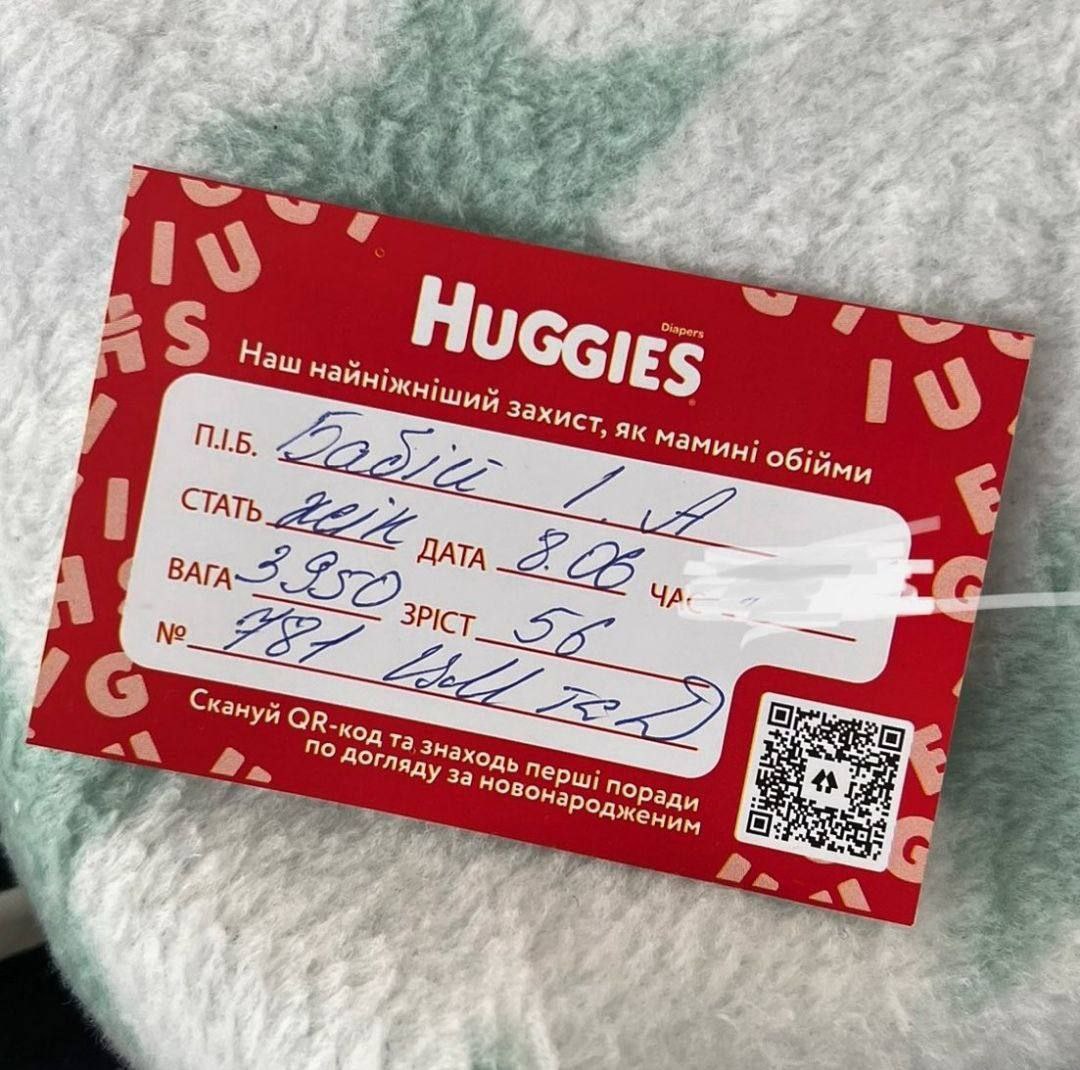 HUGGIES Diapers
Наш найніжніший захист, як мамині обійми
П.І.Б. Бабій І. А
СТАТЬ жін ДАТА 8.06 ЧАС
ВАГА 3950 ЗРІСТ 56
№ 781
Скануй QR-код та знаходь перші поради
по догляду за новонародженим